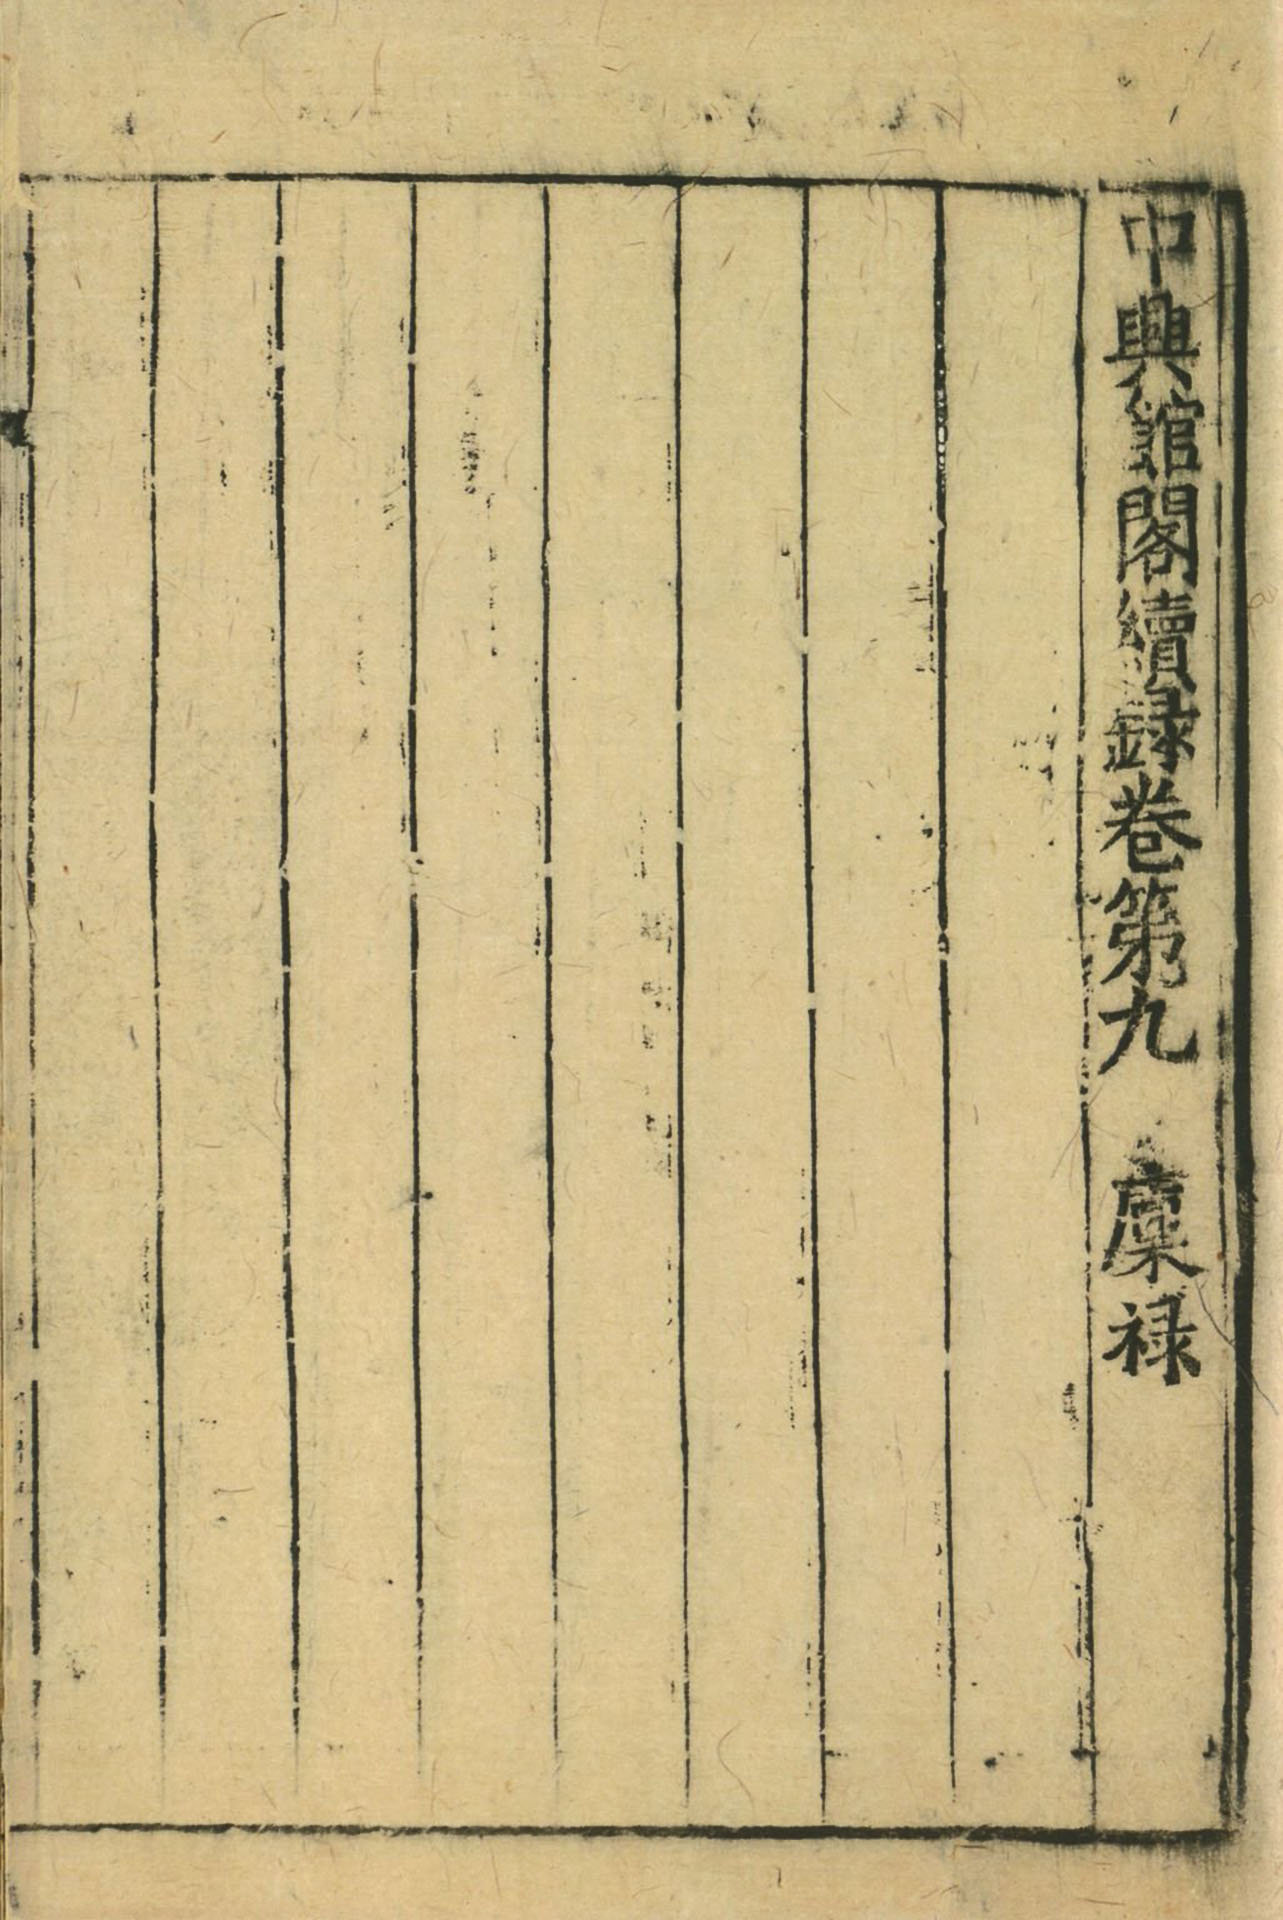 中興館閣續録卷第九　廪禄